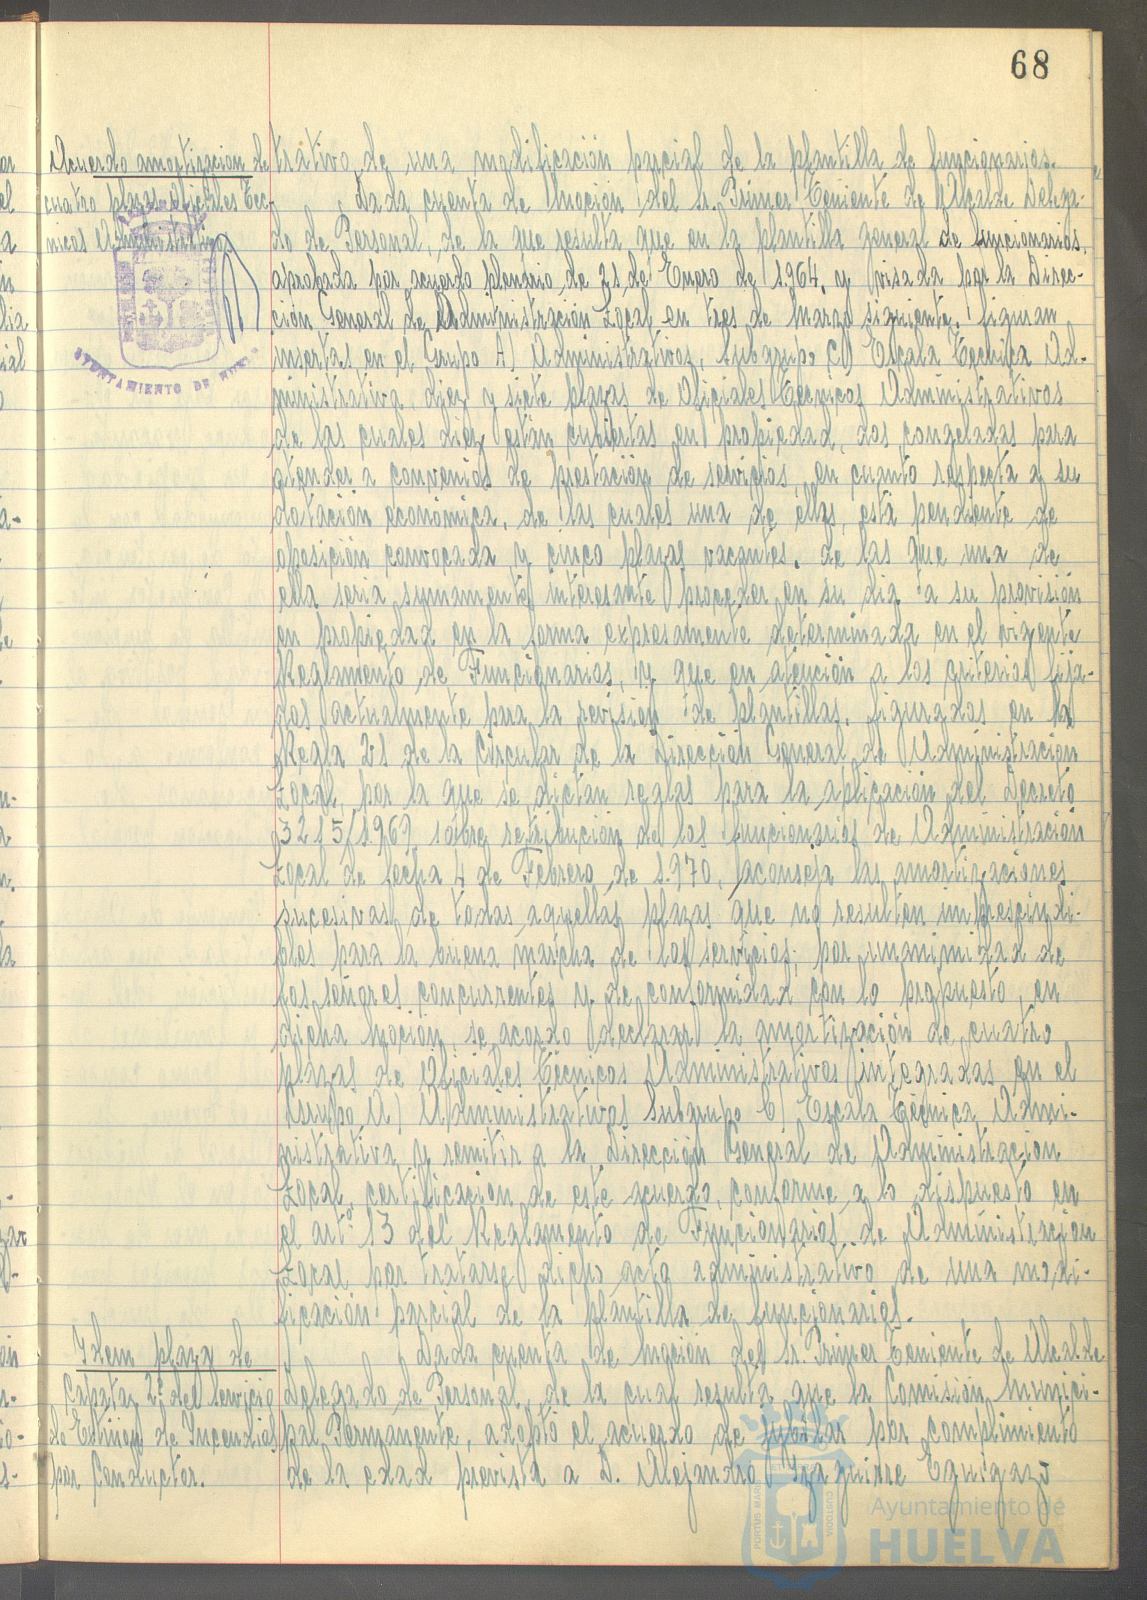 68
Acuerdo amortizacion de
cuatro plazas Oficiales Téc-
nicos Administrativos
AYUNTAMIENTO DE HUELVA
trativo de una modificación parcial de la plantilla de funcionarios.
Dada cuenta de Moción del Sr. Primer Teniente de Alcalde Delega-
do de Personal, de la que resulta que en la plantilla general de funcionarios,
aprobada por acuerdo plenario de 21 de Enero de 1.964, y visada por la Direc-
ción General de Administración Local en tres de Marzo siguiente, figuran
insertas en el Grupo A) Administrativos, Subgrupo C) Escala Técnica Ad-
ministrativa, diez y siete plazas de Oficiales Técnicos Administrativos
de las cuales diez están cubiertas en propiedad, dos congeladas para
atender a convenios de prestación de servicios, en cuanto respecta a su
dotación económica, de las cuales una de ellas, está pendiente de
oposición convocada y cinco plazas vacantes, de las que una de
ella seria sumamente interesante proceder en su dia a su provisión
en propiedad en la forma expresamente determinada en el vigente
Reglamento de Funcionarios, y que en atención a los criterios fija-
dos actualmente para la revisión de plantillas, figurados en la
Regla 21 de la Circular de la Dirección General de Administración
Local, por la que se dictan reglas para la aplicación del Decreto
3215/1.969 sobre retribución de los funcionarios de Administración
Local de fecha 4 de Febrero de 1.970, aconseja las amortizaciones
sucesivas de todas aquellas plazas que no resulten imprescindi-
bles para la buena marcha de los servicios; por unanimidad de
los señores concurrentes y de conformidad con lo propuesto, en
dicha moción, se acordó declarar la amortización de cuatro
plazas de Oficiales Técnicos Administrativos integradas en el
Grupo A) Administrativos Subgrupo C) Escala Técnica Admi-
nistrativa y remitir a la Dirección General de Administración
Local, certificacion de este acuerdo, conforme a lo dispuesto en
el artº 13 del Reglamento de Funcionarios de Administracion
Local por tratarse dicho acto administrativo de una modi-
ficación parcial de la plantilla de funcionarios.
Idem plaza de
Capataz 2º del Servicio
de Extinción de Incendios
por Conductor.
Dada cuenta de moción del Sr. Primer Teniente de Alcalde
Delegado de Personal, de la cual resulta que la Comisión Munici-
pal Permanente, adoptó el acuerdo de jubilar por cumplimiento
de la edad prevista a D. Alejandro Yzaguirre Eguigazo
PORTUS MARIS ET TERRAE CUSTODIA
Ayuntamiento de
HUELVA